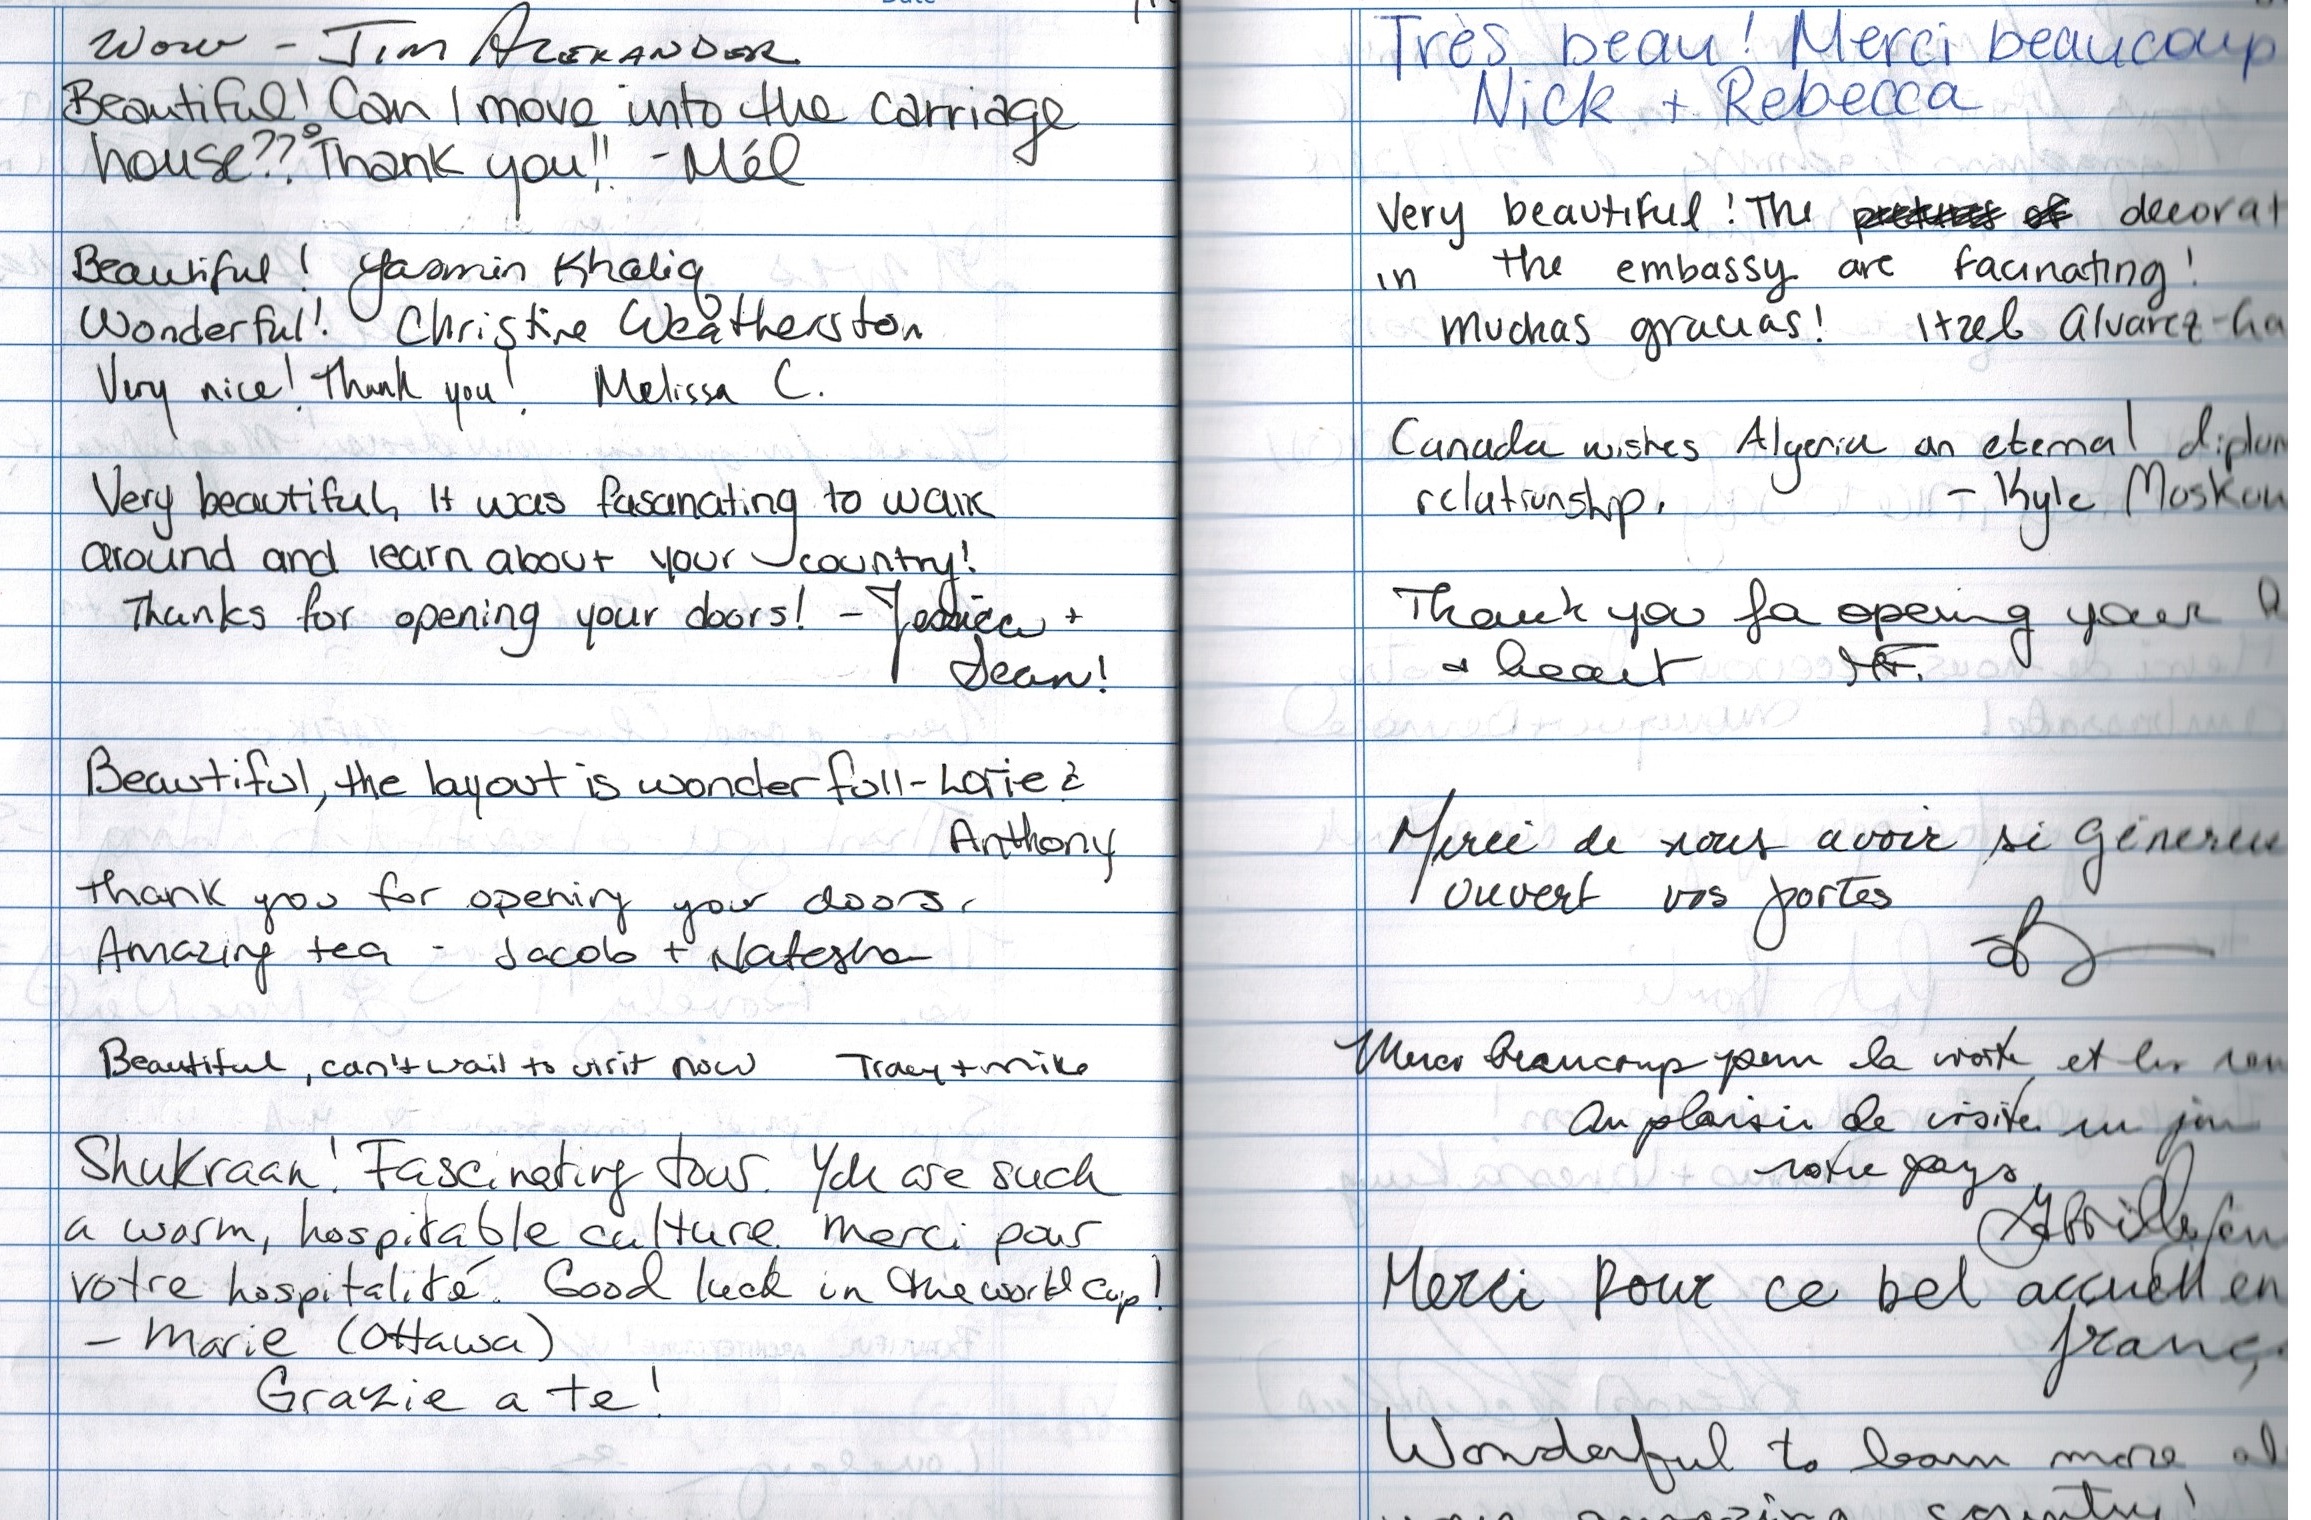 Wow - Jim Alexander
Beautiful! Can I move into the carriage
house?? Thank you!! - Mél
Beautiful! Yasmin Khaliq
Wonderful! Christine Weatherston
Very nice! Thank you! Melissa C.
Very beautiful, It was fasanating to walk
around and learn about your country!
Thanks for opening your doors! - Jessica +
Sean!
Beautiful, the layout is wonderfull - Lorie &
Anthony
Thank you for opening your doors.
Amazing tea - Jacob + Natasha
Beautiful, can't wait to visit now Tracy + Mike
Shukraan! Fascinating tour. You are such
a warm, hospitable culture. Merci pour
votre hospitalité. Good luck in the world cup!
- Marie (Ottawa)
Grazie a te!
Très beau! Merci beaucoup
Nick + Rebecca
Very beautiful! The decorat
in the embassy are facinating!
Muchas gracias! Itzel Alvarez-Ga
Canada wishes Algeria an eternal diplom
relationship. - Kyle Moskow
Thank you for opening your
+ heart
Merci de nous avoir si généreu
ouvert vos portes
Merci beaucoup pour la visite et les
Au plaisir de visiter un jour
votre pays
Merci pour ce bel accueil en
franç
Wonderful to learn more
your amazing country!